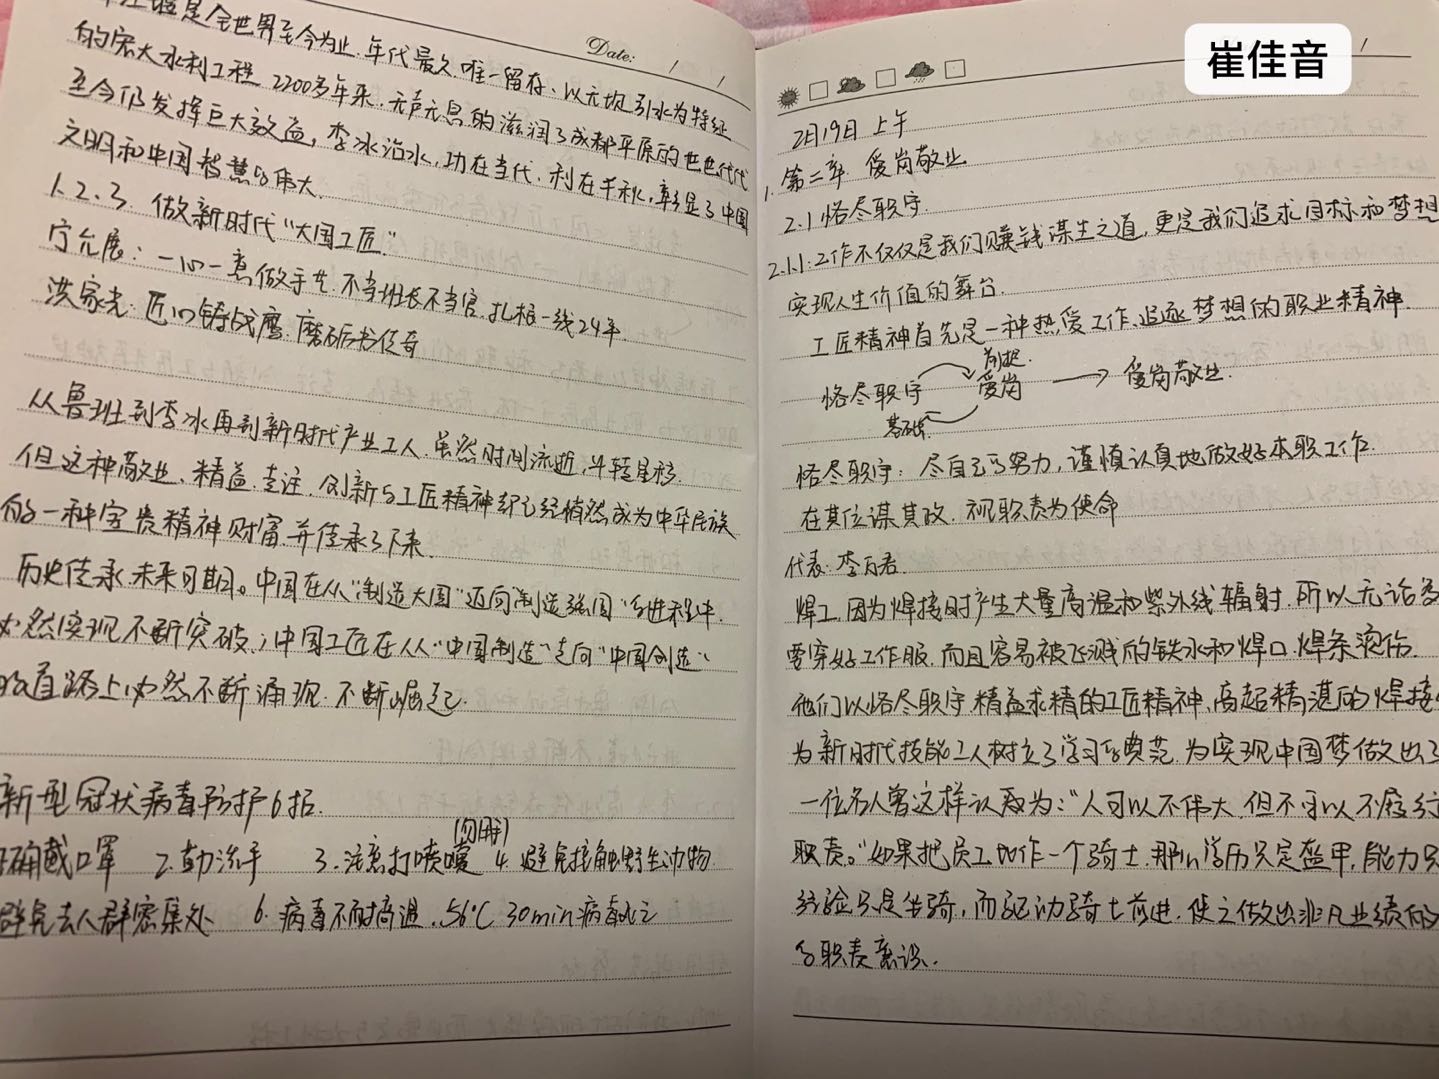 崔佳音
Date: / /
是全世界至今为止.年代最久.唯一留存、以无坝引水为特征
的宏大水利工程 2200多年来.无声无息的滋润了成都平原的世世代代
至今仍发挥巨大效益,李冰治水,功在当代.利在千秋,彰显了中国
文明和中国智慧的伟大.
1.2.3. 做新时代“大国工匠”
宁允展:一心一意做手艺.不当班长不当官.扎根一线24年.
洪家光:匠心铸战鹰.磨砺书传奇
从鲁班到李冰再到新时代产业工人.虽然时间流逝,斗转星移.
但这种敬业、精益.专注.创新的工匠精神却已经悄然成为中华民族
的一种宝贵精神财富.并传承了下来.
历史传承.未来可期。中国在从“制造大国”迈向“制造强国”的进程中.
必然实现不断突破.;中国工匠在从“中国制造”走向“中国创造”
的道路上必然不断涌现.不断崛起.
新型冠状病毒防护6招.
正确戴口罩 2.勤洗手 3.注意打喷嚏 4.避免接触野生动物
避免去人群密集处 6.病毒不耐高温.56℃ 30min病毒死亡
/
2月19日 上午
1.第二章 爱岗敬业
2.1 恪尽职守.
2.1.1.工作不仅仅是我们赚钱谋生之道,更是我们追求目标和梦想
实现人生价值的舞台.
工匠精神首先是一种热爱工作、追逐梦想的职业精神.
前提.
恪尽职守 爱岗 → 爱岗敬业.
基础
恪尽职守:尽自己的努力,谨慎认真地做好本职工作.
在其位谋其政.视职责为使命
代表:李万君.
焊工.因为焊接时产生大量高温和紫外线辐射.所以无论多
要穿好工作服.而且容易被飞溅的铁水和焊口.焊条烫伤.
他们以恪尽职守.精益求精的工匠精神、高超精湛的焊接
为新时代技能工人树立了学习的典范.为实现中国梦做出了
一位名人曾这样认为:“人可以不伟大.但不可以不履行
职责。”如果把员工比作一个骑士.那么学历只是盔甲,能力只
经验只是坐骑,而驱动骑士前进.使之做出非凡业绩的
的职责意识.